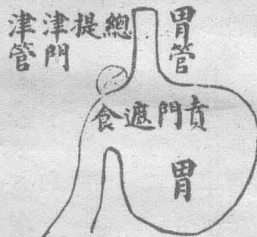 胃管
總提
津門
津管
賁門遮食
胃